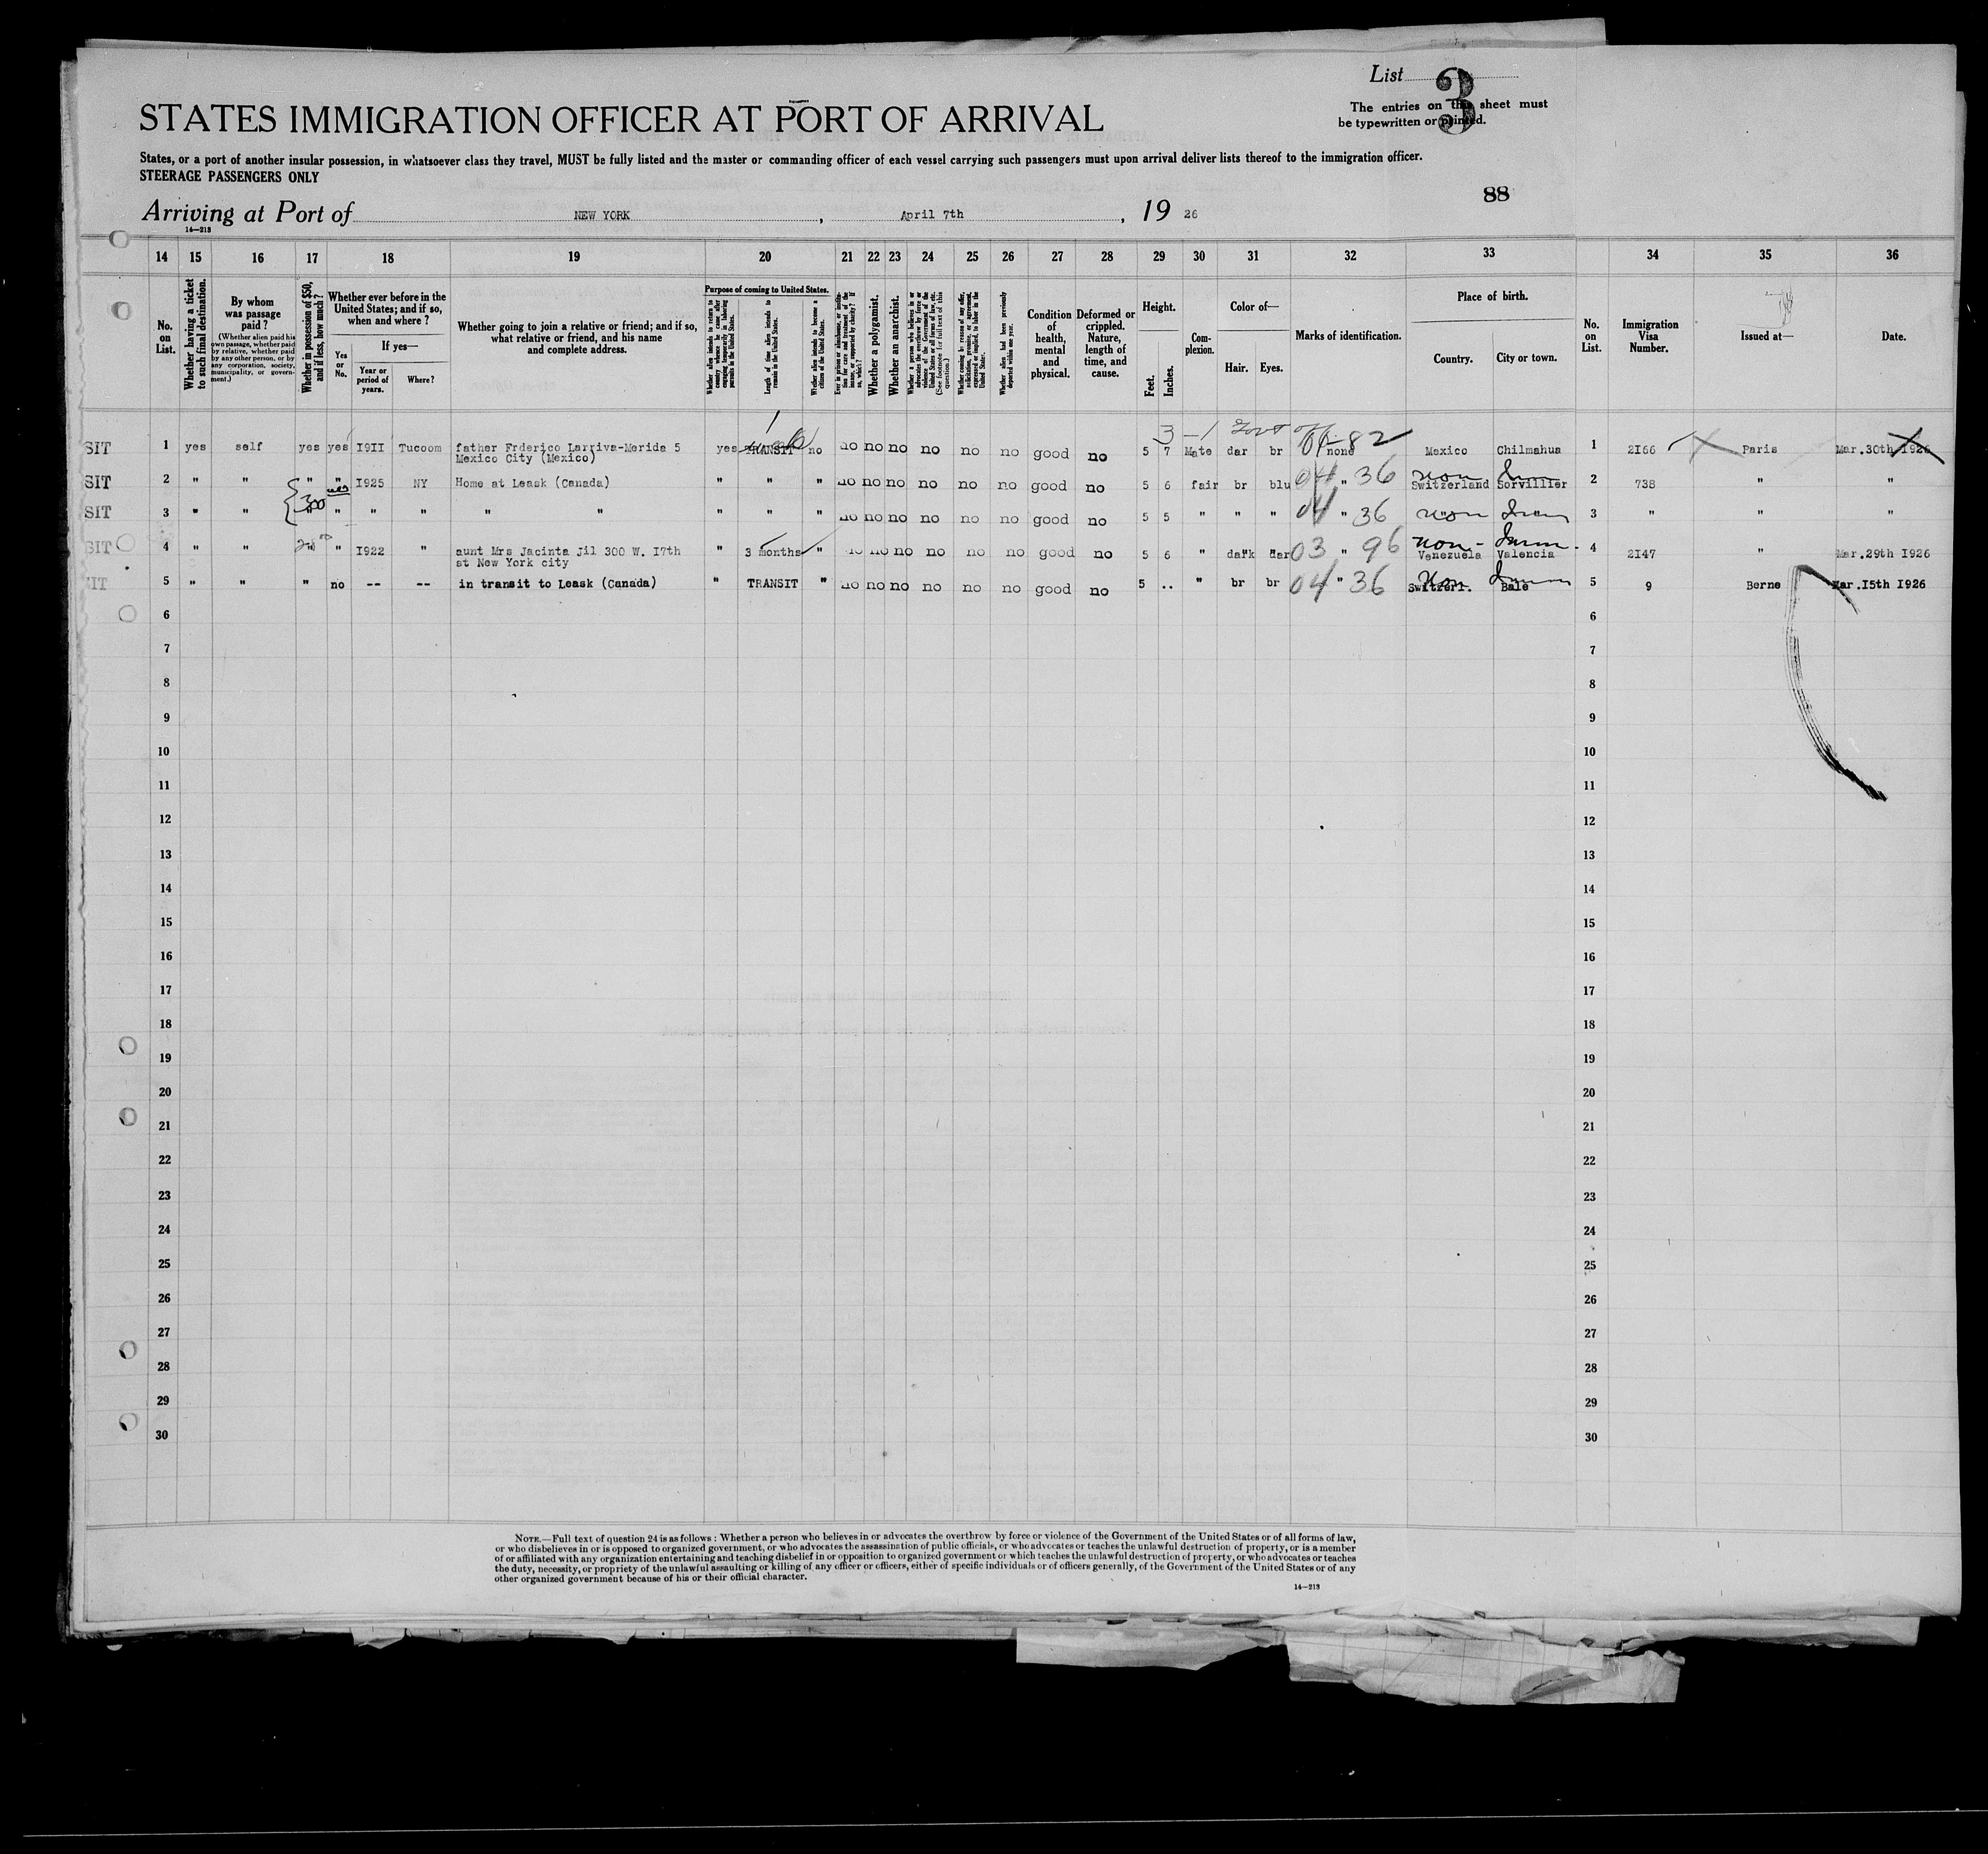 List 3
The entries on this sheet must
be typewritten or printed.
STATES IMMIGRATION OFFICER AT PORT OF ARRIVAL
States, or a port of another insular possession, in whatsoever class they travel, MUST be fully listed and the master or commanding officer of each vessel carrying such passengers must upon arrival deliver lists thereof to the immigration officer.
STEERAGE PASSENGERS ONLY
88
Arriving at Port of NEW YORK, April 7th, 19 26
14—213
14 15 16 17 18 19 20 21 22 23 24 25 26 27 28 29 30 31 32 33 34 35 36
No. on List.
Whether having a ticket to such final destination.
By whom was passage paid?
(Whether alien paid his own passage, whether paid by relative, whether paid by any other person, or by any corporation, society, municipality, or government.)
Whether in possession of $50, and if less, how much?
Whether ever before in the United States; and if so, when and where?
Yes or No.
If yes—
Year or period of years.
Where?
Whether going to join a relative or friend; and if so, what relative or friend, and his name and complete address.
Purpose of coming to United States.
Whether alien intends to return to country whence he came after engaging temporarily in laboring pursuits in the United States.
Length of time alien intends to remain in the United States.
Whether alien intends to become a citizen of the United States.
Ever in prison or almshouse, or institution for care and treatment of the insane, or supported by charity? If so, which?
Whether a polygamist.
Whether an anarchist.
Whether a person who believes in or advocates the overthrow by force or violence of the Government of the United States or all forms of law, etc. (See footnote for full text of this question.)
Whether coming by reason of any offer, solicitation, promise, or agreement, expressed or implied, to labor in the United States.
Whether alien had been previously deported within one year.
Condition of health, mental and physical.
Deformed or crippled. Nature, length of time, and cause.
Height.
Feet.
Inches.
Complexion.
Color of—
Hair.
Eyes.
Marks of identification.
Place of birth.
Country.
City or town.
No. on List.
Immigration Visa Number.
Issued at—
Date.
3 -1
SIT 1 yes self yes yes I9II Tucoom father Frderico Larriva-Merida 5 yes TRANSIT no no no no no no no good no 5 7 Mate dar br none 82 Mexico Chilmahua 1 2I66 Paris Mar.30th 1926
Mexico City (Mexico)
SIT 2 " " " " I925 NY Home at Leask (Canada) " " " no no no no no no good no 5 6 fair br blu 04 " 36 Switzerland Sorvillier 2 738 " "
300
SIT 3 " " " " " " " " " " " no no no no no no good no 5 5 " " " 04 " 36 3 " " "
SIT 4 " " " " I922 " aunt Mrs Jacinta Jil 300 W. I7th " 3 months " no no no no no good no 5 6 " dark dar 03 " 96 Non- Venezuela Valencia 4 2I47 " Mar.29th I926
at New York city
SIT 5 " " " no -- -- in transit to Leask (Canada) " TRANSIT " no no no no no no good no 5 .. " br br 04 " 36 Switzerl. Bale 5 9 Berne Mar.I5th I926
6 6
7 7
8 8
9 9
10 10
11 11
12 12
13 13
14 14
15 15
16 16
17 17
18 18
19 19
20 20
21 21
22 22
23 23
24 24
25 25
26 26
27 27
28 28
29 29
30 30
NOTE.—Full text of question 24 is as follows: Whether a person who believes in or advocates the overthrow by force or violence of the Government of the United States or of all forms of law,
or who disbelieves in or is opposed to organized government, or who advocates the assassination of public officials, or who advocates or teaches the unlawful destruction of property, or is a member
of or affiliated with any organization entertaining and teaching disbelief in or opposition to organized government or which teaches the unlawful destruction of property, or who advocates or teaches
the duty, necessity, or propriety of the unlawful assaulting or killing of any officer or officers, either of specific individuals or of officers generally, of the Government of the United States or of any
other organized government because of his or their official character.
14—213